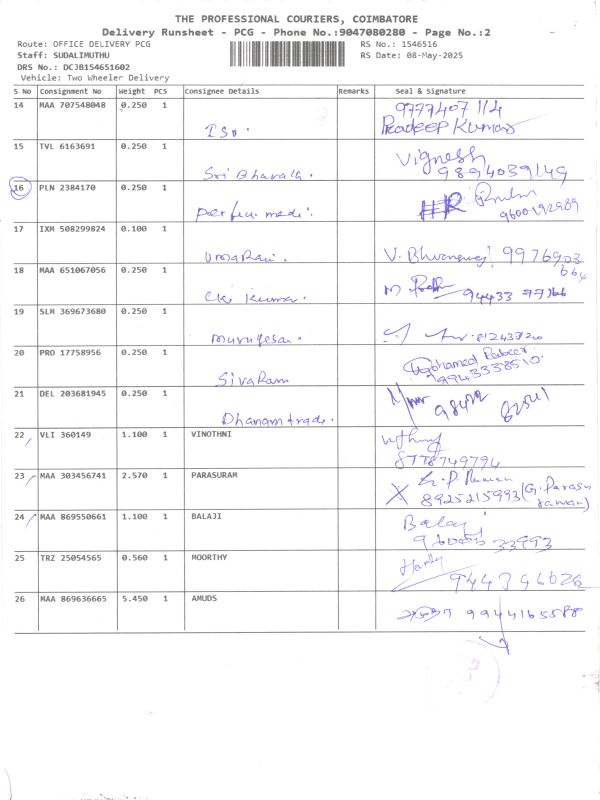 THE PROFESSIONAL COURIERS, COIMBATORE
Delivery Runsheet - PCG - Phone No.:9047080280 - Page No.:2
Route: OFFICE DELIVERY PCG
RS No.: 1546516
Staff: SUDALIMUTHU
RS Date: 08-May-2025
DRS No.: DCJB154651602
Vehicle: Two Wheeler Delivery
S No Consignment No Weight PCS Consignee Details Remarks Seal & Signature
14 MAA 707548048 0.250 1
9777407114
Pradeep Kumar
15 TVL 6163691 0.250 1
Vignesh
Sri Bharath.
9894039149
16 PLN 2384170 0.250 1
9600192989
17 IXM 508299824 0.100 1
UmaRani.
V. 9976903
664
18 MAA 651067056 0.250 1
Kumar.
94433 77766
19 SLM 369673680 0.250 1
Murugesan.
20 PRO 17758956 0.250 1
Mohamed
SivaRam
9943338510
21 DEL 203681945 0.250 1
Dhanam trade.
22 VLI 360149 1.100 1 VINOTHNI
8778749794
23 MAA 303456741 2.570 1 PARASURAM
8925215993 (G. Parasu
raman)
24 MAA 869550661 1.100 1 BALAJI
Balaji
33993
25 TRZ 25054565 0.560 1 MOORTHY
26 MAA 869636665 5.450 1 AMUDS
9944165588